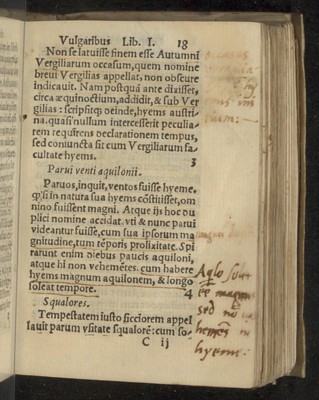 Vulgaribus Lib. I. 18
Non se latuisse finem esse Autumni
Vergiliarum occasum, quem nomine
breui Vergilias appellat, non obscure
indicauit. Nam postquā ante dixisset,
circa æquinoctium, addidit, & sub Ver
gilias: scripsitq; deinde, hyems austri
na. quasi nullum intercesserit peculia-
rem requirens declarationem tempus,
sed coniuncta sit cum Vergiliarum fa
cultate hyems. 3
Parui venti aquilonii.
Paruos, inquit, ventos fuisse hyeme.
q; si in natura sua hyems cōstitisset, om
nino fuissent magni. Atque ijs hoc du
plici nomine accidat. vti & nunc parui
videantur fuisse, cum sua ipsorum ma
gnitudine, tum tēporis prolixitate. Spi
rarunt enim diebus paucis aquiloni,
atque hi non vehemētes. cum habere
hyems magnum aquilonem, & longo
soleat tempore. 4
Squalores.
Tempestatem iusto sicciorem appel
lauit parum vsitate squalorē: cum so-
C ij
Aqlo
magn
sed no
hemēs
hyems